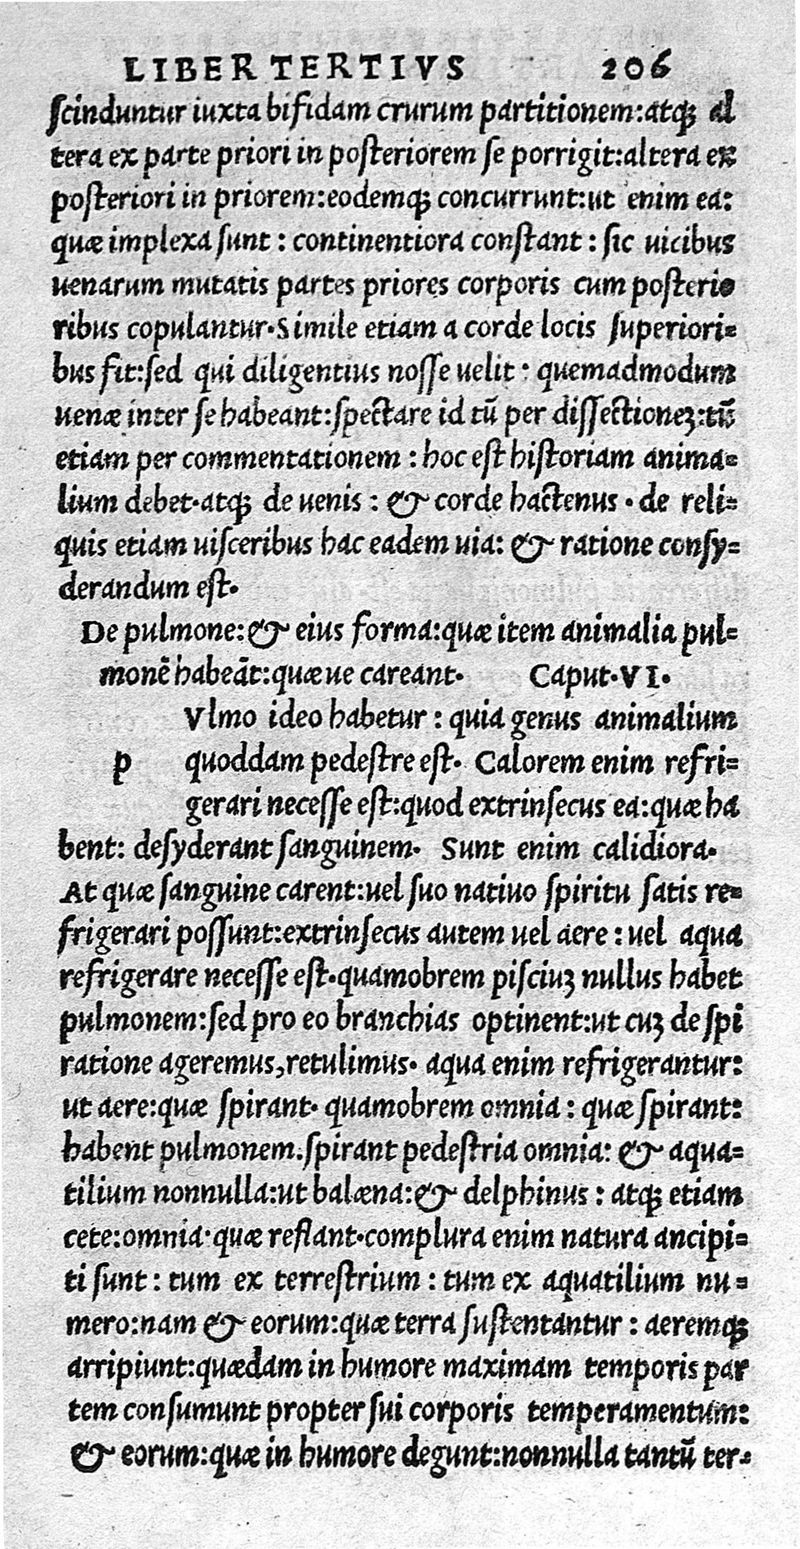 LIBER TERTIVS 206
ſcinduntur iuxta bifidam crurum partitionem:atqꝫ al
tera ex parte priori in poſteriorem ſe porrigit:altera ex
poſteriori in priorem:eodemqꝫ concurrunt:ut enim ea:
quæ implexa ſunt : continentiora conſtant : ſic uicibus
uenarum mutatis partes priores corporis cum poſterio
ribus copulantur.Simile etiam a corde locis ſuperiori=
bus fit:ſed qui diligentius noſſe uelit : quemadmodum
uenæ inter ſe habeant:ſpectare id tũ per diſſectioneꝫ:tũ
etiam per commentationem : hoc eſt hiſtoriam anima=
lium debet.atqꝫ de uenis : & corde hactenus . de reli=
quis etiam uiſceribus hac eadem uia: & ratione conſy=
derandum eſt.
De pulmone:& eius forma:quæ item animalia pul=
monẽ habeãt:quæ ue careant. Caput.VI.
Vlmo ideo habetur : quia genus animalium
p quoddam pedeſtre eſt. Calorem enim refri=
gerari neceſſe eſt:quod extrinſecus ea:quæ ha
bent: deſyderant ſanguinem. Sunt enim calidiora.
At quæ ſanguine carent:uel ſuo natiuo ſpiritu ſatis re=
frigerari poſſunt:extrinſecus autem uel aere : uel aqua
refrigerare neceſſe eſt.quamobrem piſciuꝫ nullus habet
pulmonem:ſed pro eo branchias optinent:ut cuꝫ de ſpi
ratione ageremus,retulimus. aqua enim refrigerantur:
ut aere:quæ ſpirant. quamobrem omnia : quæ ſpirant:
habent pulmonem.ſpirant pedeſtria omnia: & aqua=
tilium nonnulla:ut balæna:& delphinus : atqꝫ etiam
cete:omnia.quæ reflant.complura enim natura ancipi=
ti ſunt : tum ex terreſtrium : tum ex aquatilium nu=
mero:nam & eorum:quæ terra ſuſtentantur : aeremqꝫ
arripiunt:quædam in humore maximam temporis par
tem conſumunt propter ſui corporis temperamentum:
& eorum:quæ in humore degunt:nonnulla tantũ ter=